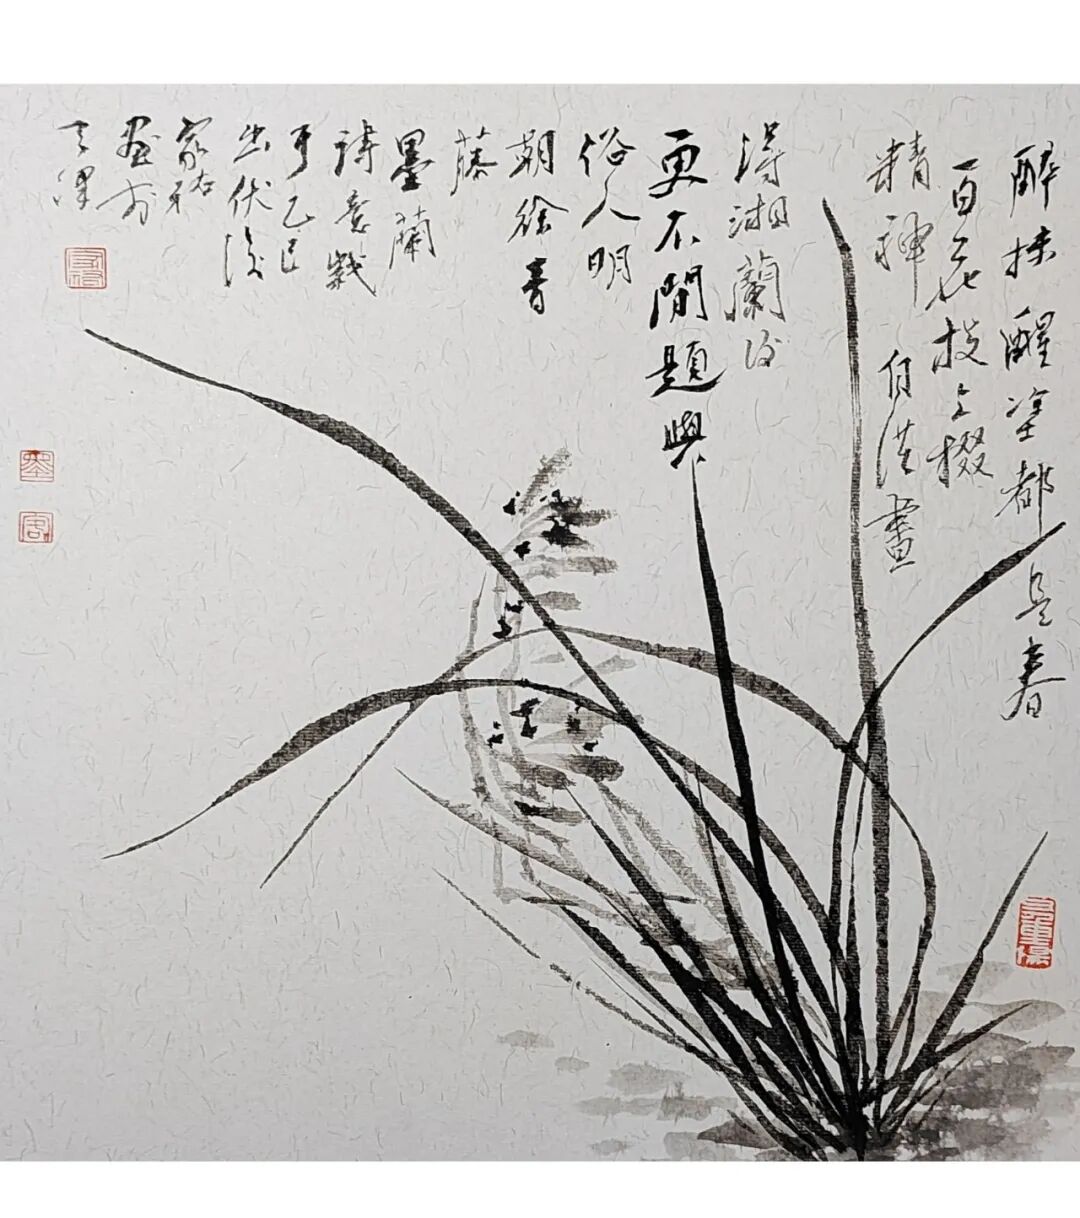 醉抹醒塗都是春
百花枝上掇
精神自從畫
得湘蘭後
更不閒題與
俗人明
朝徐青
藤
墨蘭
詩意戲
于乙巳
出伏後
家
畫於
天津